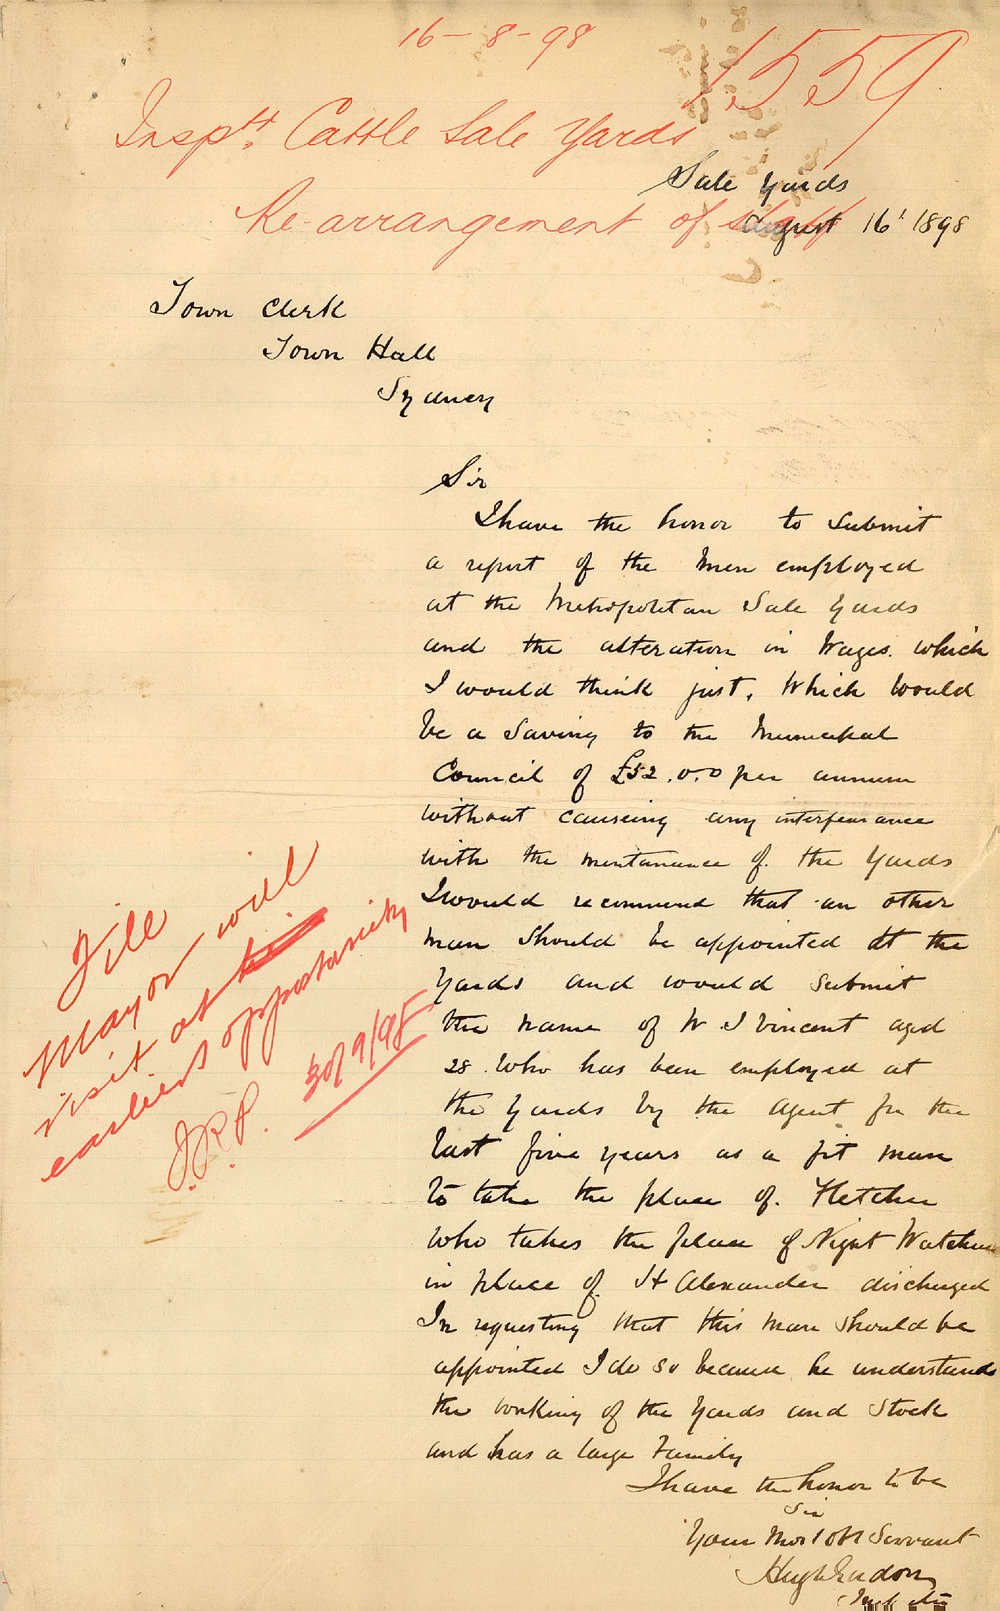 16-8-98
1559
Insptr. Cattle Sale Yards
Sale Yards
Re-arrangement of staff
August 16' 1898
Town Clerk
Town Hall
Sydney
Sir
I have the honor to submit
a report of the men employed
at the Metropolitan Sale Yards
and the alteration in Wages. which
I would think just, Which would
be a Saving to the
Council of £52.0.0 per annum
without causeing any
with the mentanance of. the Yards
I would recommend that an other
man Should be appointed at the
Yards and would submit
the name of W J Vincent aged
28. Who has been employed at
the Yards by the Agent for the
last five years as a fit man
to take the place of. Fletcher
who takes the place of Night
in place of Alexander discharged
In requesting that this man should be
appointed I do so because he understands
the working of the Yards and Stock
and has a large Family
I have the honor to be
Sir
Your Most Obt Servant
Hugh
File
Mayor will
visit at
earliest opportunity
J.R.P. 30/9/98